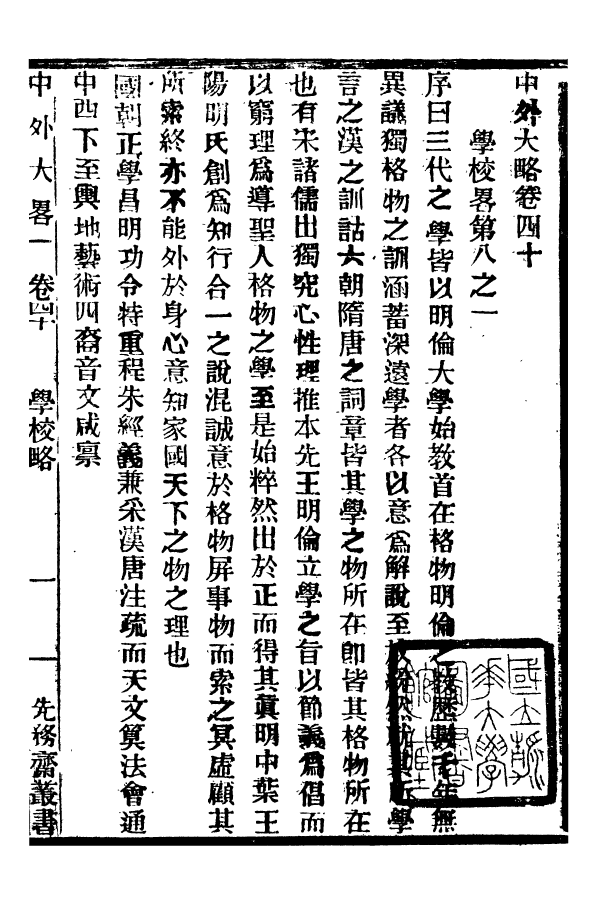 中外大略卷四十
學校畧第八之一
序曰三代之學皆以明倫大學始教首在格物明倫之教歷數千年無
異議獨格物之訓涵蓄深遠學者各以意爲解說至於然就其所學
言之漢之訓詁六朝隋唐之詞章皆其學之物所在卽皆其格物所在
也有宋諸儒出獨究心性理推本先王明倫立學之旨以節義爲倡而
以窮理爲導聖人格物之學至是始粹然出於正而得其眞明中葉王
陽明氏創爲知行合一之說混誠意於格物屏事物而索之冥虛顧其
所索終亦不能外於身心意知家國天下之物之理也
國朝正學昌明功令特重程朱經義兼采漢唐注疏而天文算法會通
中西下至輿地藝術四裔音文咸禀
中外大畧一 卷四十 學校略 一 一 先務齋叢書
國立清華大學圖書館藏